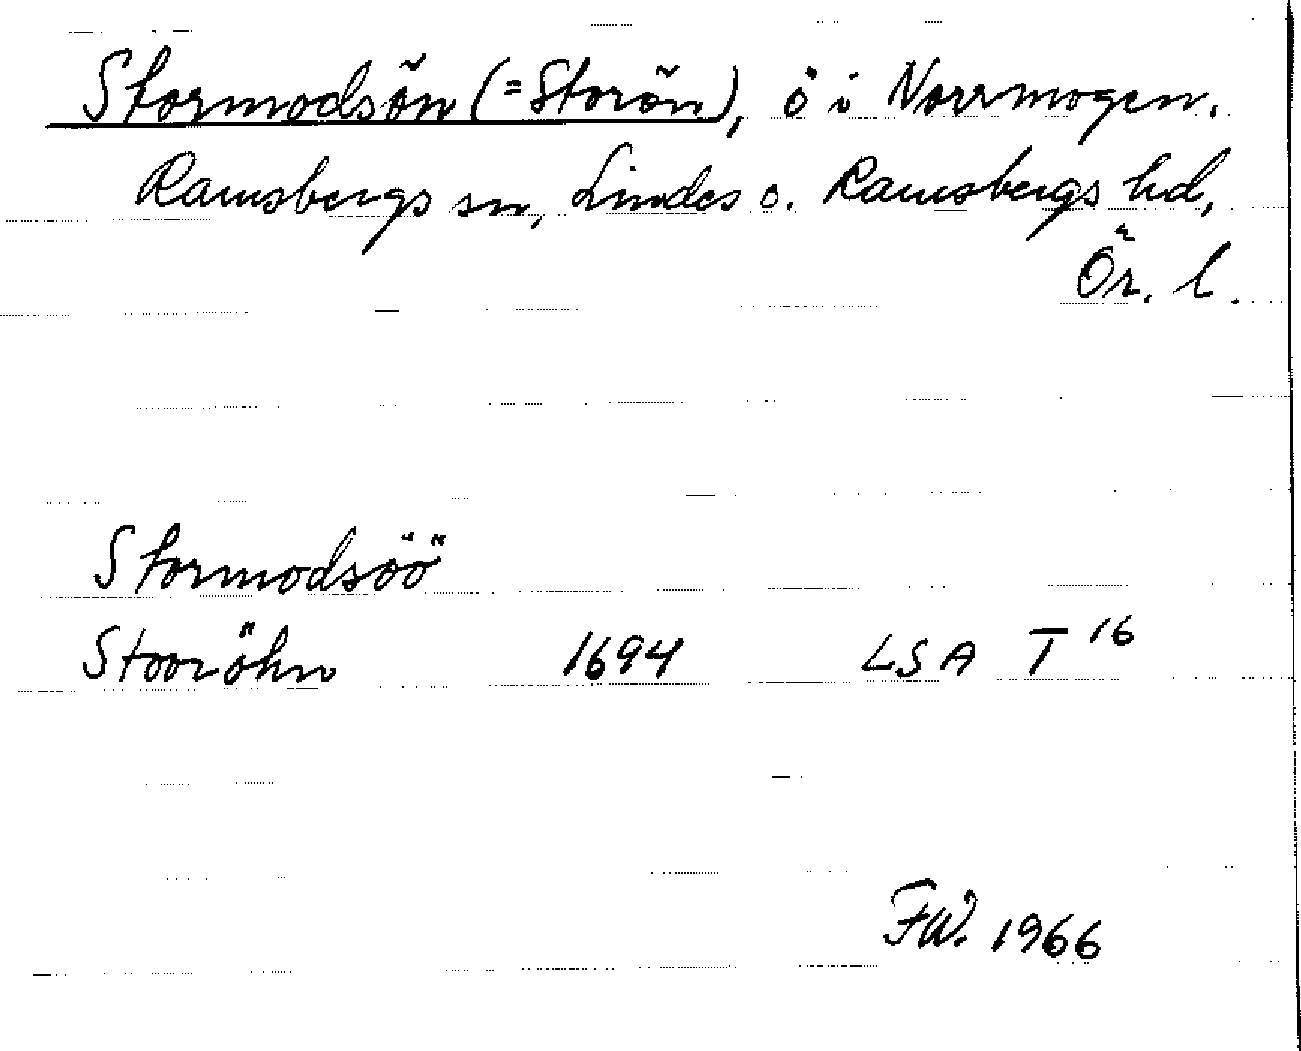 Stormodsön (=Storön), ö i Norrmogen.
Ramsbergs sn, Lindes o. Ramsbergs hd,
Ör. l.
Stormodsöö
Stooröhn 1694 LSA T 16
FW. 1966